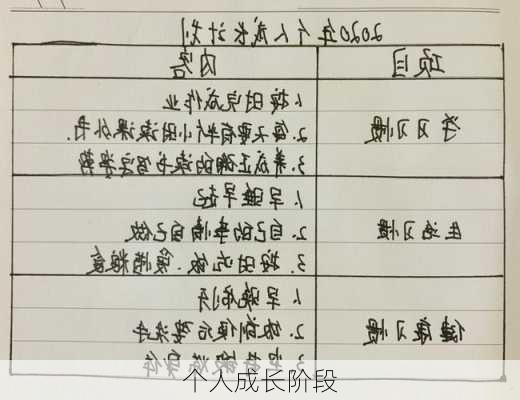 2020年个人成长计划
项目 内容
学习习惯
1.按时完成作业
2.每天要有半个小时读课外书.
3.养成正确的读书写字姿势
生活习惯
1.早睡早起
2.自己的事情自己做
3.按时吃饭.惜粮食
健康习惯
1.早晚刷牙
2.饭前便后要洗手
3.锻炼身体
个人成长阶段